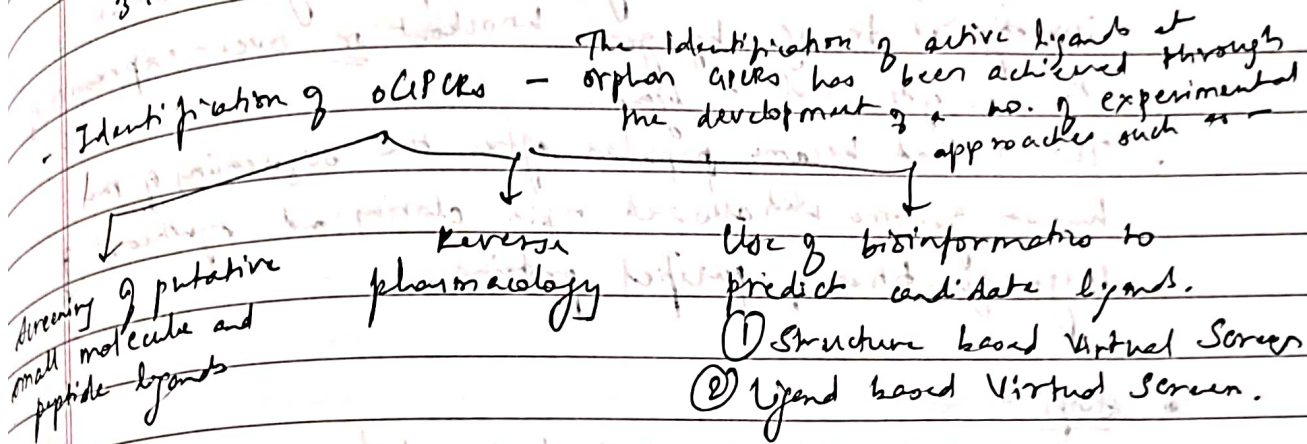 - Identification of oGPCRs - The Identification of active ligands at
orphan GPCRs has been achieved through
the development of a no. of experimental
approaches such as -
Screening of putative
small molecule and
peptide ligands
Reverse
pharmacology
Use of bioinformatics to
predict candidate ligands.
① Structure based Virtual Screen
② Ligand based Virtual Screen.